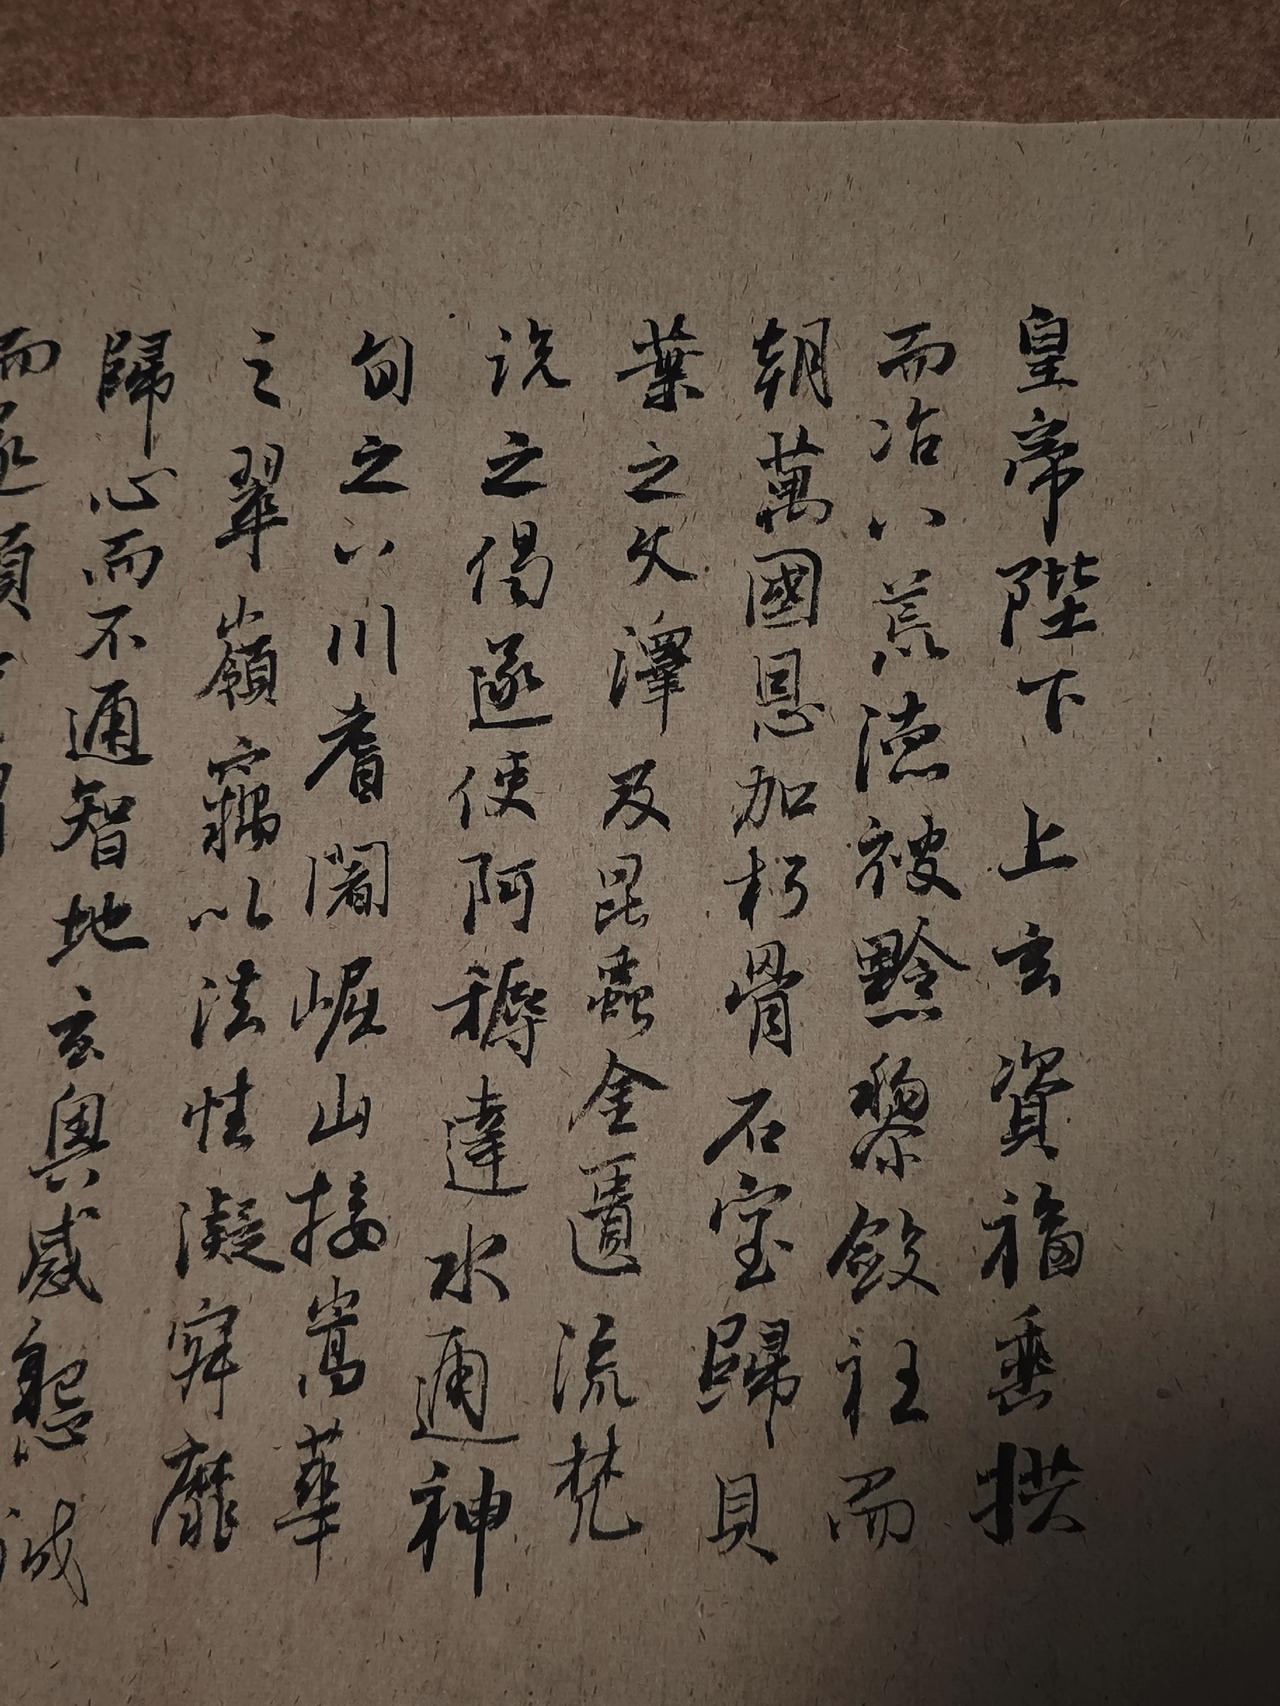 皇帝陛下上玄資福垂拱
而治八荒德被黔黎斂衽而
朝萬國恩加朽骨石室歸貝
葉之文澤及昆蟲金匱流梵
説之偈遂使阿耨達水通神
甸之八川耆闍崛山接嵩華
之翠嶺竊以法性凝寂靡
歸心而不通智地玄奧感懇誠
而遂顯